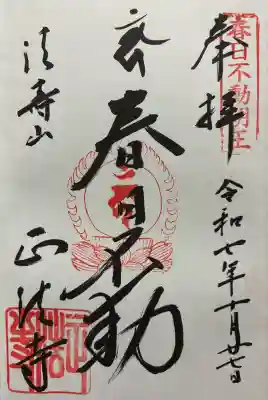 奉拝
春日不動明王
令和七年十月廿七日
春日不動
法壽山
正法寺